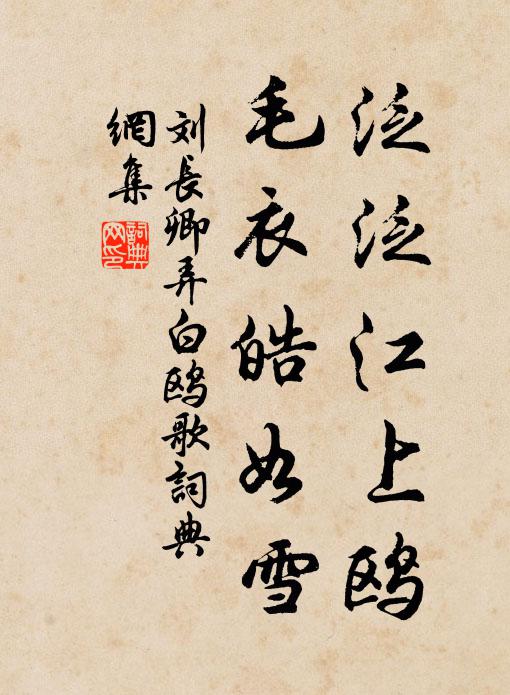 泛泛江上鸥
毛衣皓如雪
刘長卿弄白鸥歌詞典
網集
詞典网印